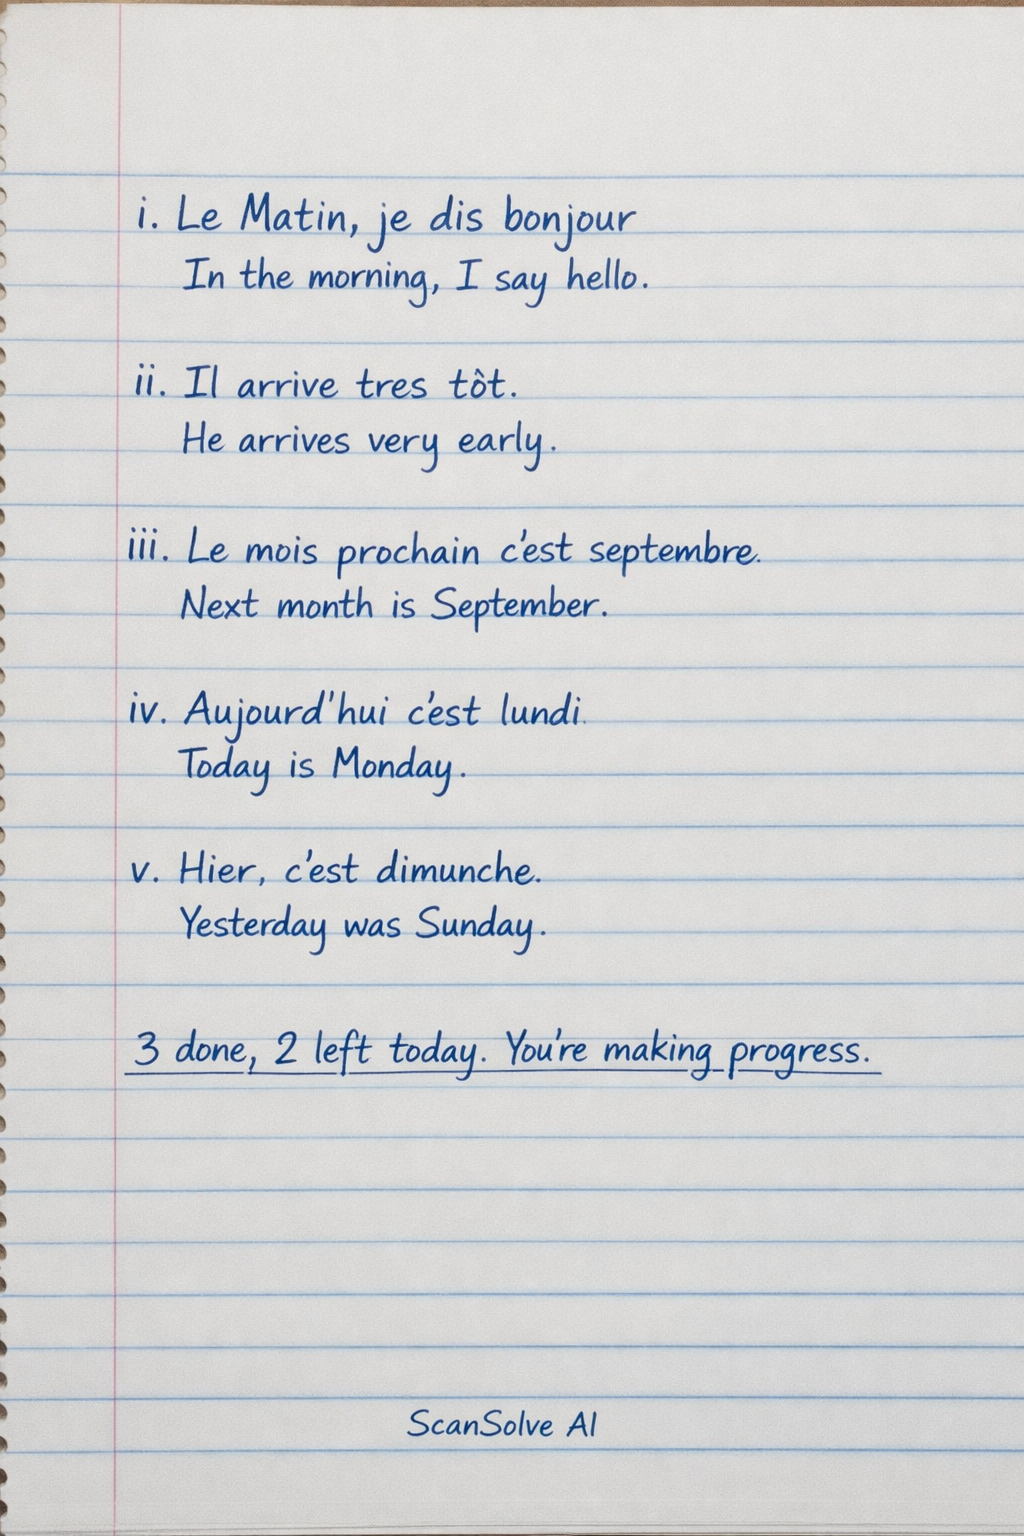 i. Le Matin, je dis bonjour
In the morning, I say hello.
ii. Il arrive tres tôt.
He arrives very early.
iii. Le mois prochain c'est septembre.
Next month is September.
iv. Aujourd'hui c'est lundi.
Today is Monday.
v. Hier, c'est dimunche.
Yesterday was Sunday.
3 done, 2 left today. You're making progress.
ScanSolve AI